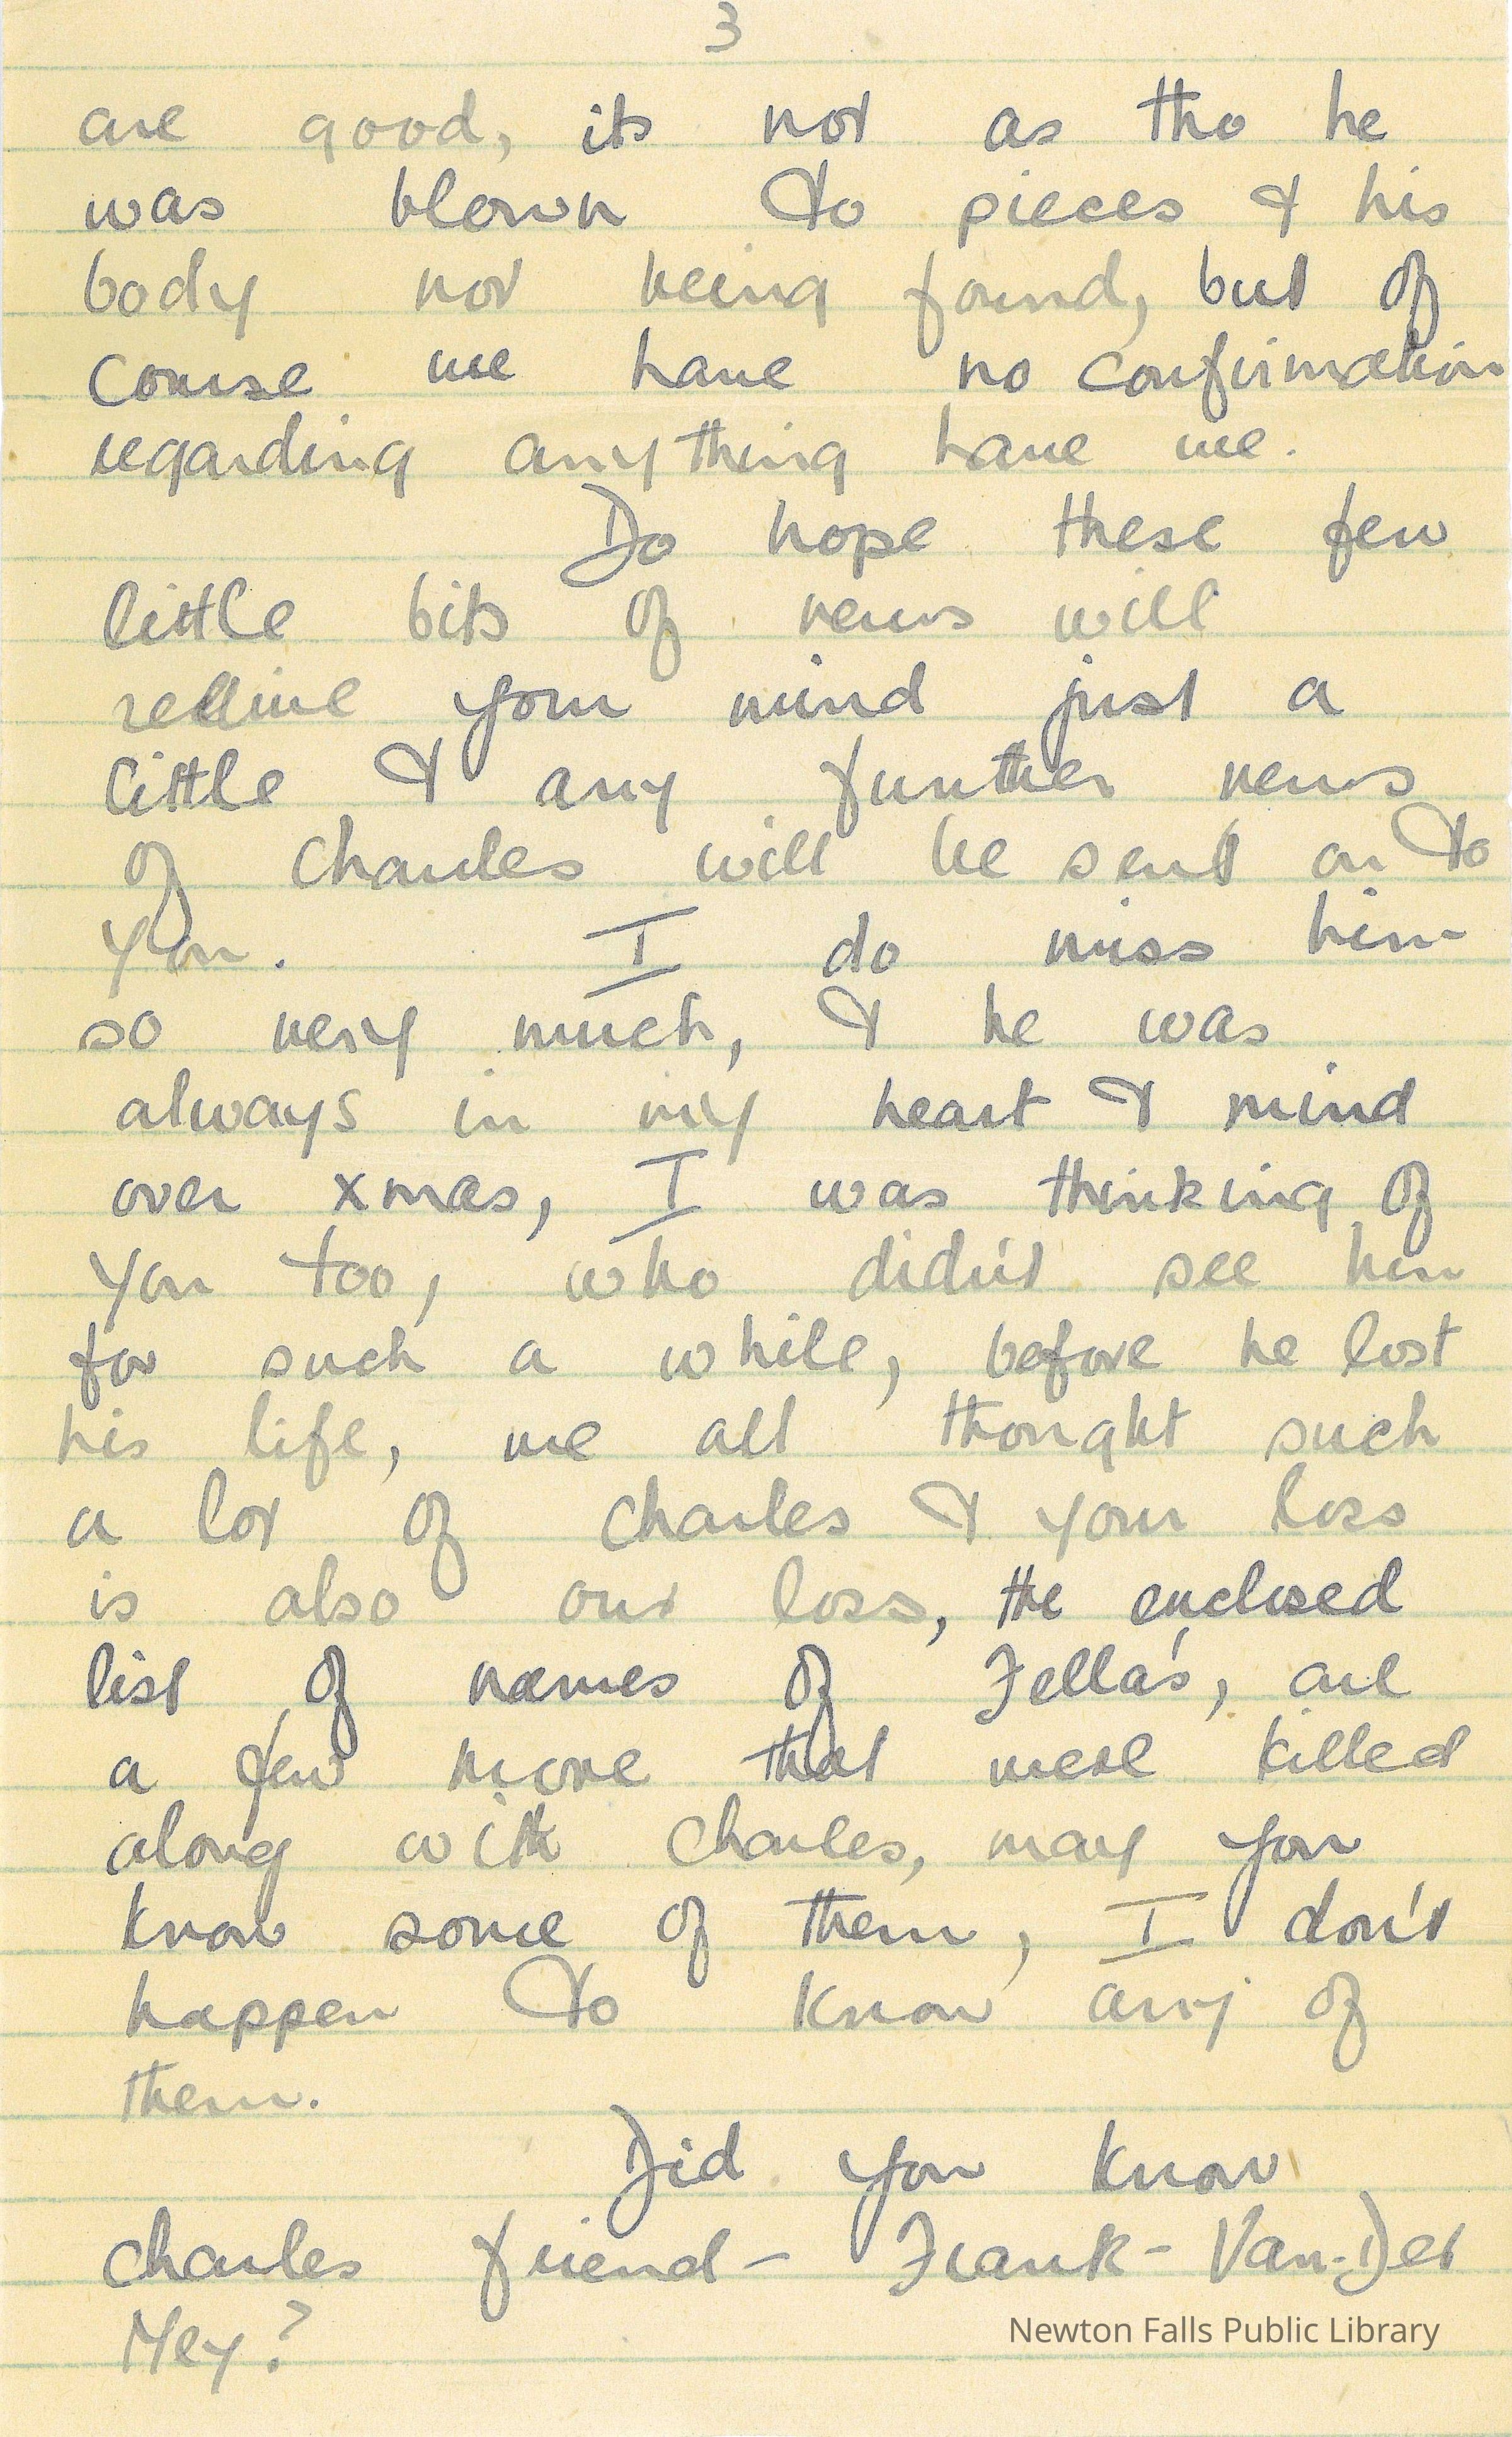 3
are good, its not as tho he
was blown to pieces & his
body not being found, but of
course we have no confirmation
regarding anything have we.
Do hope these few
little bits of news will
relive your mind just a
little & any further news
of Charles will be sent on to
you. I do miss him
so very much, & he was
always in my heart & mind
over xmas, I was thinking of
you too, who didn't see him
for such a while, before he lost
his life, we all thought such
a lot of Charles & your loss
is also our loss, the enclosed
list of names of Fella's, are
a few more that were killed
along with Charles, may you
know some of them, I don't
happen to know any of
them.
Did you know
Charles friend - Frank - Van-Der
Mey?
Newton Falls Public Library